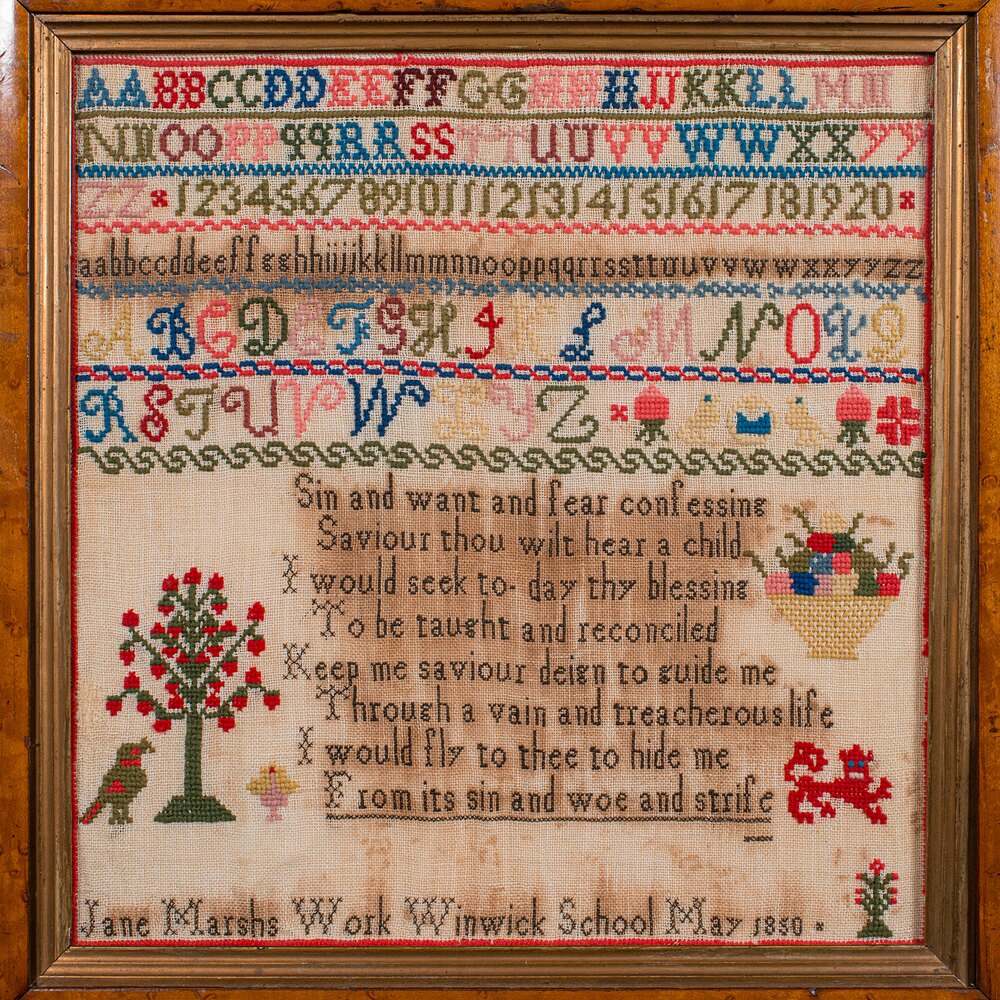 AABBCCDDEEFFGGHHIIJJKKLLMM
NNOOPPQQRRSSTTUUVVWWXXYY
ZZ 1234567891011121314151617181920
aabbccddeeffgghhiijjkkllmmnnooppqqrrssttuuvvwwxxyyzz
A B C D E F G H I K L M N O P Q
R S T U V W X Y Z
Sin and want and fear confessing
Saviour thou wilt hear a child
I would seek to-day thy blessing
To be taught and reconciled
Keep me saviour deign to guide me
Through a vain and treacherous life
I would fly to thee to hide me
From its sin and woe and strife
Jane Marshs Work Winwick School May 1850